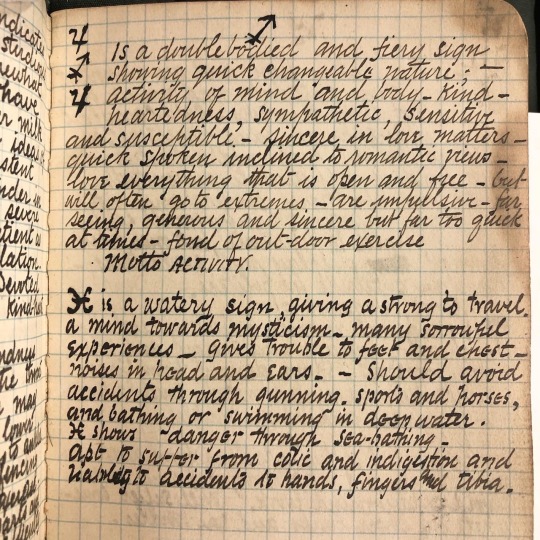 ndicates
studious
mewhat
have
er milk
ideas
stent
nder in
severe
tient as
lation.
Devoted
Kind-heart
ndneys
the thro
may
lower
♐
♃ Is a doublebodied and fiery sign
♐ showing quick changeable nature; —
♃ activity of mind and body - Kind-
heartedness, sympathetic, sensitive
and susceptible. - sincere in love matters -
quick spoken inclined to romantic views -
love everything that is open and free - but
will often go to extremes - are impulsive - far
seeing, generous and sincere but far too quick
at times - fond of out-door exercise
Motto Activity.
♓ is a watery sign giving a strong to travel.
a mind towards mysticism - many sorrowful
experiences - gives trouble to feet and chest -
noises in head and ears. - Should avoid
accidents through gunning, sports and horses,
and bathing or swimming in deep water.
♓ shows - danger through sea-bathing -
apt to suffer from colic and indigestion and
liability to accidents to hands, fingers and tibia.